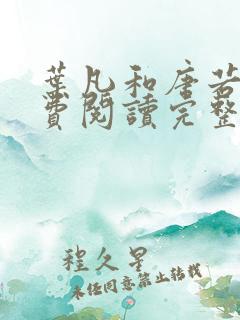 葉凡和唐若
費閱讀完整
程久星
未经同意禁止转载